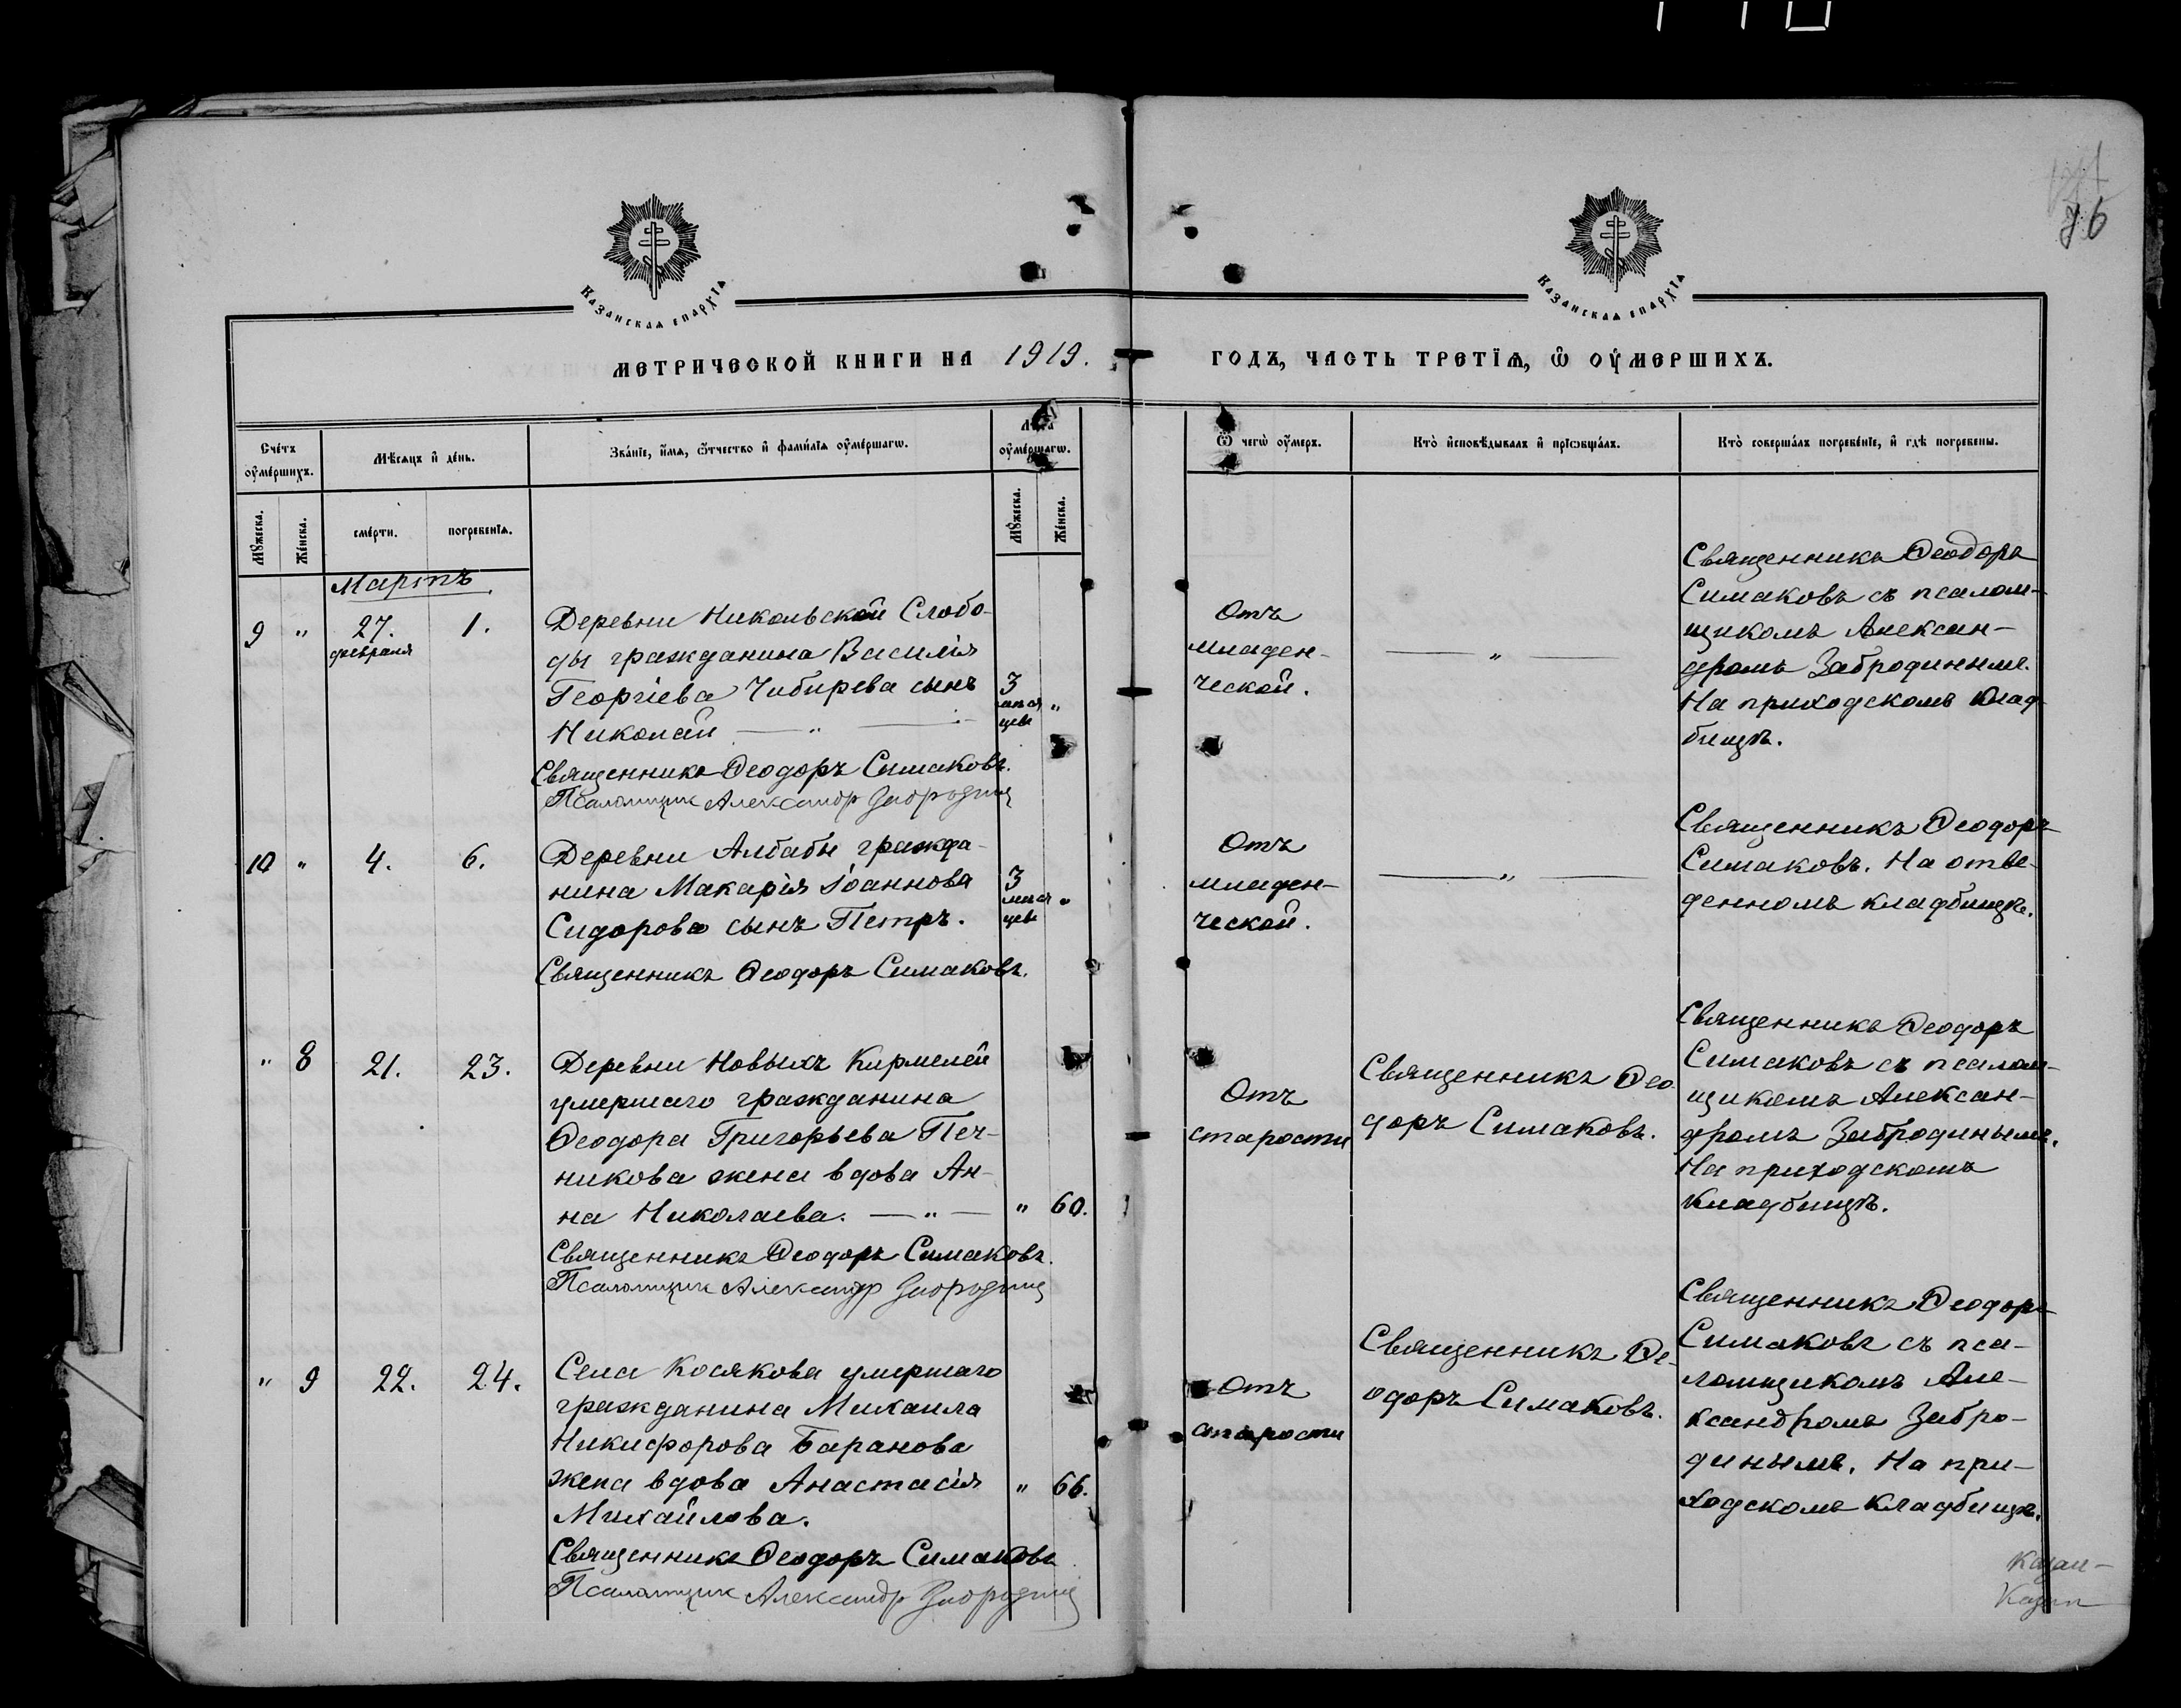 76
КАЗАНСКАЯ ЕПАРХІЯ
КАЗАНСКАЯ ЕПАРХІЯ
МЕТРИЧЕСКОЙ КНИГИ НА 1919. ГОДЪ, ЧАСТЬ ТРЕТІѦ, Ѽ ОУМЕРШИХЪ.
Сче́тъ оу҆ме́ршихъ.
Мѣ́сѧцъ и҆ де́нь.
Зва́нїе, и҆́мѧ, ѻ҆́тчество и҆ фами́лїѧ оу҆ме́ршагѡ.
Лѣта оу҆ме́ршагѡ.
Ѿ чегѡ̀ оу҆́меръ.
Кто̀ и҆сповѣ́дывалъ и҆ прїѡбща́лъ.
Кто̀ соверша́лъ погребе́нїе, и҆ гдѣ̀ погребены.
Мꙋ́жеска.
Же́нска.
сме́рти.
погребенїѧ.
Мꙋ́жеска.
Же́нска.
Мартъ
9 " 27. февраля 1.
Деревни Никольской Слобо-
ды гражданина Василія
Георгіева Чибирева сынъ
Николай — " —
3 мѣся цевъ "
Священникъ Ѳеодоръ Симаковъ.
Псаломщик Александр Забродин
Отъ
младен-
ческой.
— " —
Священникъ Ѳеодоръ
Симаковъ съ псалом-
щикомъ Алексан-
дромъ Забродинымъ.
На приходскомъ клад-
бищѣ.
10 " 4. 6.
Деревни Албабы гражда-
нина Макарія Іоаннова
Сидорова сынъ Петръ.
3 мѣся цевъ "
Священникъ Ѳеодоръ Симаковъ.
Отъ
младен-
ческой.
— " —
Священникъ Ѳеодоръ
Симаковъ. На отве-
денномъ кладбищѣ.
" 8 21. 23.
Деревни Новыхъ Кирмелей
умершаго гражданина
Ѳеодора Григорьева Печ-
никова жена вдова Ан-
на Николаева. — " — " 60.
Священникъ Ѳеодоръ Симаковъ.
Псаломщик Александр Забродин
Отъ
старости
Священникъ Ѳео-
доръ Симаковъ.
Священникъ Ѳеодоръ
Симаковъ съ псалом-
щикомъ Алексан-
дромъ Забродинымъ.
На приходскомъ
кладбищѣ.
" 9 22. 24.
Села Косякова умершаго
гражданина Михаила
Никифорова Баранова
жена вдова Анастасія " 66.
Михайлова.
Священникъ Ѳеодоръ Симаковъ
Псаломщик Александр Забродин
Отъ
старости
Священникъ Ѳе-
одоръ Симаковъ.
Священникъ Ѳеодоръ
Симаковъ съ пса-
ломщикомъ Але-
ксандромъ Забро-
динымъ. На при-
ходскомъ кладбищѣ.